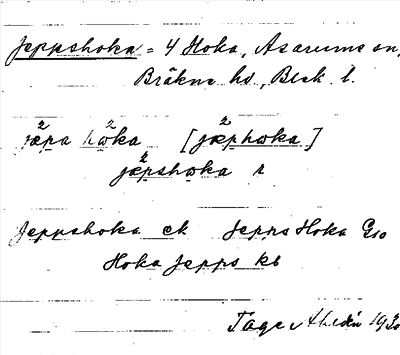 Jeppshoka = 4 Hoka, Asarums sn,
Bräkne hd, Blek. l.
jæ2pa hω2ka [jæ2phωka]
jæ2pshωka r
Jeppshoka ek Jepps Hoka G10
Hoka Jepps kb
Tage Ahldén 1930